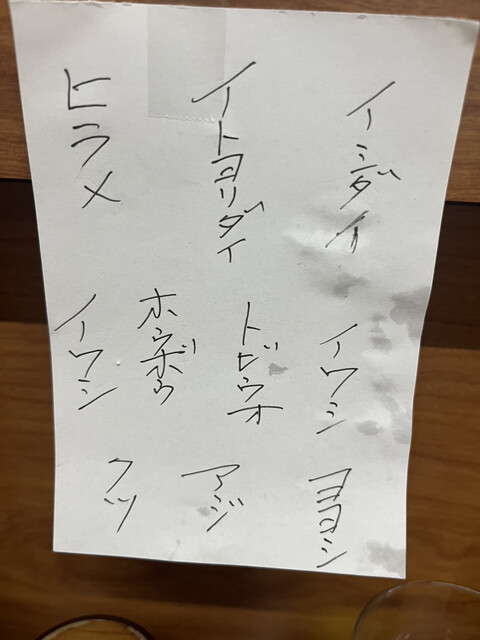 イシダイ
イトヨリダイ
ヒラメ
イワシ
トビウオ
ホウボウ
イワシ
ヨコシ
アジ
クツ